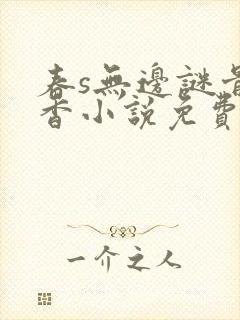 春s無邊謎
香小說免費
一介之人